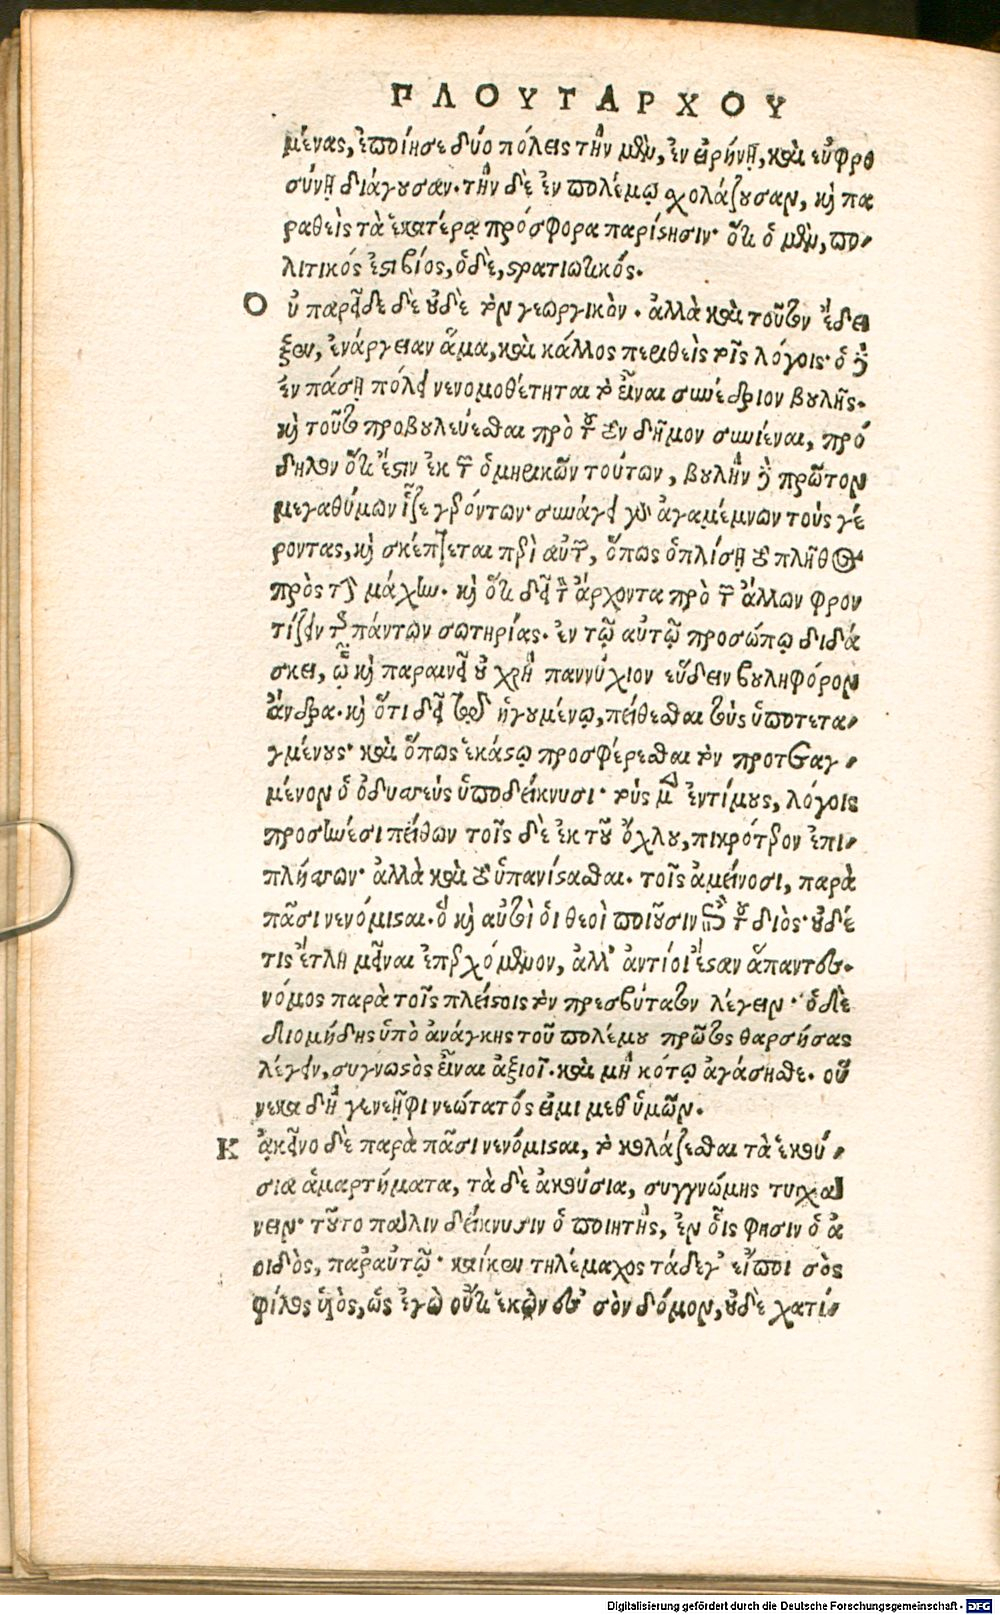 ΠΛΟΥΤΑΡΧΟΥ
μένας, ἐποίησε δύο πόλεις τὴν μὲν, ἐν εἰρήνῃ, καὶ εὐφρο
σύνῃ διάγουσαν. τὴν δὲ ἐν πολέμῳ σχολάζουσαν, κỳ πα
ραθεὶς τὰ ἑκατέρᾳ πρόσφορα παρίστησιν· ὅτι ὁ μὲν, πο-
λιτικός ἐστι βίος, ὁ δὲ, στρατιωτικός.
Οὐ παρῆδε δὲ οὐδὲ τὸν γεωργικὸν. ἀλλὰ καὶ τοῦτον ἔδει
ξεν, ἐνάργειαν ἅμα, καὶ κάλλος περιθεὶς τοῖς λόγοις· ὃ γὰρ
ἐν πάσῃ πόλει νενομοθέτηται τὸ εἶναι συνέδριον βουλῆς.
καὶ τοῦτο προβουλεύεσθαι πρὸ τοῦ τὸν δῆμον συνιέναι, πρό
δηλον ὅτι ἔστιν ἐκ τῶν ὁμηρικῶν τούτων, βουλὴν γὰρ πρῶτον
μεγαθύμων ἷζε γερόντων· συνάγει γοῦν ἀγαμέμνων τοὺς γέ
ροντας, καὶ σκέπτεται περὶ αὐτῶν, ὅπως ὁπλίσῃ τὸ πλῆθος
πρὸς τὴν μάχην. καὶ ὅτι δεῖ τὸν ἄρχοντα πρὸ τῶν ἄλλων φρον
τίζειν τῆς πάντων σωτηρίας. ἐν τῷ αὐτῷ προσώπῳ διδά
σκει, ᾧ καὶ παραινεῖ οὐ χρὴ παννύχιον εὕδειν βουληφόρον
ἄνδρα. καὶ ὅτι δεῖ τῷ ἡγουμένῳ, πείθεσθαι τοὺς ὑποτετα-
γμένους· καὶ ὅπως ἑκάστῳ προσφέρεσθαι τὸν προτεταγ-
μένον ὁ ὀδυσσεὺς ὑποδείκνυσι· τοὺς μὲν ἐντίμους, λόγοις
προσηνέσι πείθων τοῖς δὲ ἐκ τοῦ ὄχλου, πικρότερον ἐπι-
πλήττων· ἀλλὰ καὶ τὸ ὑπανίστασθαι. τοῖς ἀμείνοσι, παρὰ
πᾶσι νενόμισται. ὃ καὶ αὐτοὶ οἱ θεοὶ ποιοῦσιν ἐπὶ τοῦ διός· οὐδέ
τις ἔτλη μεῖναι ἐπερχόμενον, ἀλλ' ἀντίοι ἔσταν ἅπαντες.
νόμος παρὰ τοῖς πλείστοις τὸν πρεσβύτατον λέγειν· ὁ δὲ
διομήδης ὑπὸ ἀνάγκης τοῦ πολέμου πρῶτος θαρσήσας
λέγειν, συγνωστὸς εἶναι ἀξιοῖ. καὶ μὴ κότῳ ἀγάσησθε. οὕ
νεκα δὴ γενεῆφι νεώτατός εἰμι μεθ' ὑμῶν.
Κἀκεῖνο δὲ παρὰ πᾶσι νενόμισται, τὸ κολάζεσθαι τὰ ἑκού-
σια ἁμαρτήματα, τὰ δὲ ἀκούσια, συγγνώμης τυγχά
νειν· τοῦτο πάλιν δείκνυσιν ὁ ποιητὴς, ἐν οἷς φησιν ὁ ἀ
οιδὸς, παρ' αὐτῷ· καί κεν τηλέμαχος τάδε γ' εἴποι σὸς
φίλος υἱὸς, ὡς ἐγὼ οὔτι ἑκὼν ἐς σὸν δόμον, οὐδὲ χατί-
Digitalisierung gefördert durch die Deutsche Forschungsgemeinschaft - DFG